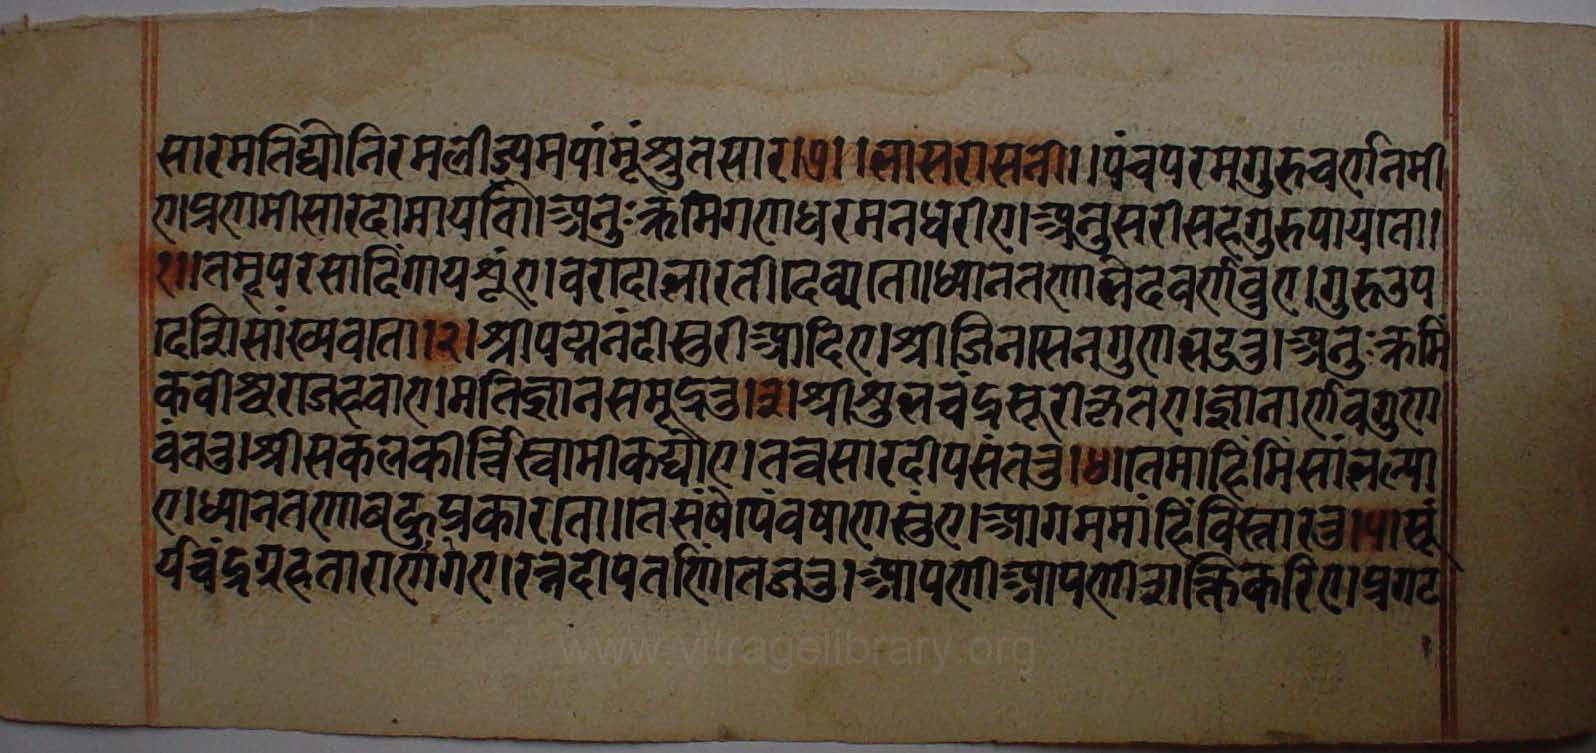 सारमतिद्यौनिरमलीज्यमपांमूंश्रुतसार।७। ।भासरासनी। ।पंचपरमगुरुचर्णनमी
ए।प्रणमीसारदामायतो।अनुःक्रमिंगणधरमनधरीए।अनुसरीसहगुरुपायतो।
१।तमृपरसादिंगायशूंए।वरदाभारती।देव्यतो।ध्यानतणाभेदवर्णवुए।गुरुउप
देशिसांख्यवतो।२।श्रीपद्मनंदीसूरीआदिए।श्रीजिनसेनगुणभद्रतु।अनुःक्रमिं
कवीश्वरजेहवाए।मतिज्ञानसमूद्रतु।३।श्रीशुभचंद्रसूरीकृतए।ज्ञानार्णवगुण
वंततु।श्रीसकलकीर्त्तिस्वामीकर्द्यौए।तत्वसारदीपसंततु।४।तेमाहिंमिंसांभल्या
ए।ध्यानतणाबहुप्रकारतो।तेसंषेपिंवषाणसूंए।आगममांहिंविस्तारतु।५।सूं
र्यचंद्रग्रहतारार्णगए।रत्नदीपतणिंतेजतु।आपणीआपणीशक्तिकरिए।प्रगट
www.vitragelibrary.org